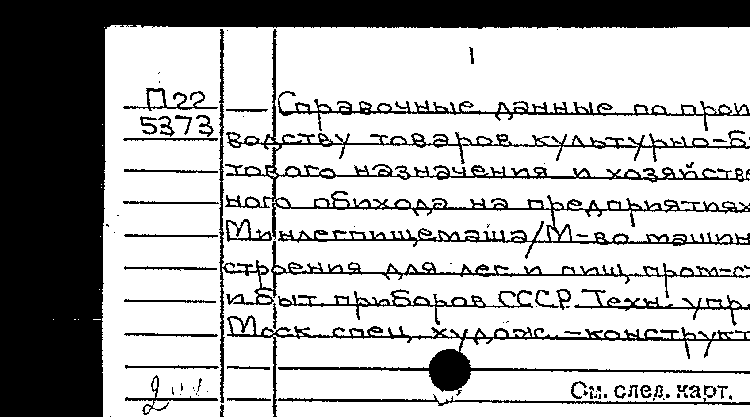 1
П22
5373
Справочные данные по прои
водству товаров культурно-б
тового назначения и хозяйстве
ного обихода на предприятиях
Минлегпищемаша/М-во машин
строения для лег и пищ. пром-с
и быт. приборов СССР. Техн. упр
Моск спец. худож.-конструкт
См. след. карт.